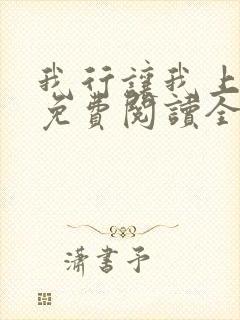 我行讓我上
免費閱讀全
瀟書予